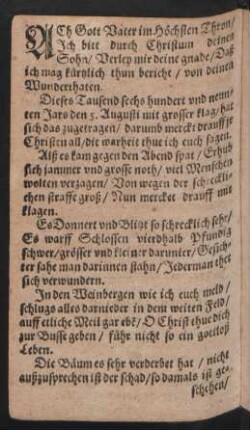 ACh Gott Vater im Höchsten Thron/
Ich bitt durch Christum deinen
Sohn/ Verley mir deine gnade/ Daß
ich mag kürtzlich thun bericht/ von deinen
Wunderthaten.
Dieses Tausend sechs hundert vnd neun-
ten Jars den 5. Augusti mit grosser klag/ hat
sich das zugetragen/ darumb merckt drauff je
Christen all/ die warheit thue ich euch sagen.
Alß es kam gegen den Abend spat/ Erhub
sich jammer vnd grosse noth/ viel Menschen
wolten verzagen/ Von wegen der schreckli-
chen straffe groß/ Nun mercket drauff mit
klagen.
Es Donnert vnd Blitzt so schrecklich sehr/
Es warff Schlossen vierdhalb Pfundig
schwer/ grösser vnd kleiner darunter/ Gesich-
ter sahe man darinnen stahn/ Jederman thet
sich verwundern.
In den Weinbergen wie ich euch meld/
schlugs alles darnieder in dem weiten Feld/
auff etliche Meil gar ebē/ O Christ thue dich
zur Busse geben/ führ nicht so ein gottloß
Leben.
Die Bäum es sehr verderbet hat/ nicht
außzusprechen ist der schad/ so damals ist ges
schehen/